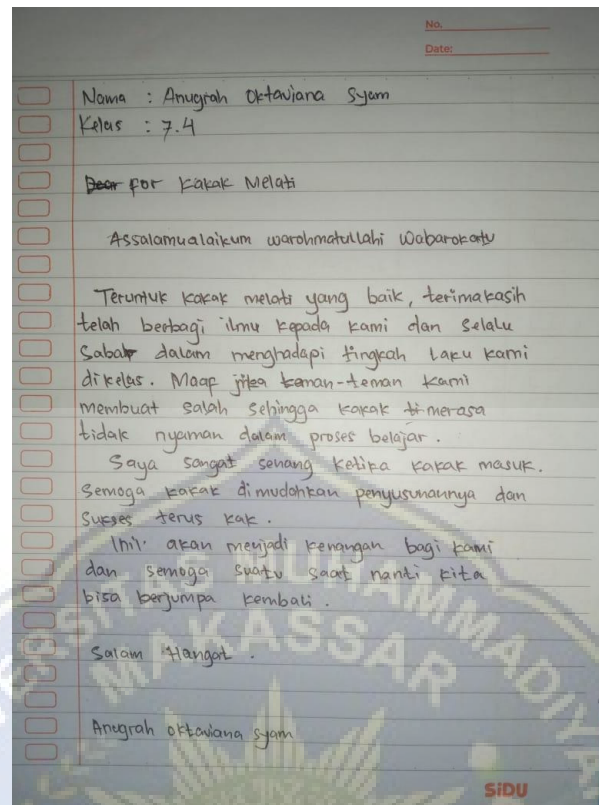 No.
Date:
Nama : Anugrah Oktaviana Syam
Kelas : 7.4
Dear for Kakak Melati
Assalamualaikum warohmatullahi Wabarokatu
Teruntuk kakak melati yang baik, terimakasih
telah berbagi ilmu kepada kami dan selalu
Sabar dalam menghadapi tingkah laku kami
dikelas. Maap jika teman-teman kami
membuat salah sehingga kakak merasa
tidak nyaman dalam proses belajar.
Saya sangat senang ketika kakak masuk.
Semoga kakak dimudahkan penyusunannya dan
Sukses terus kak.
Ini akan menjadi kenangan bagi kami
dan semoga suatu saat nanti kita
bisa berjumpa kembali.
Salam Hangat.
Anugrah oktaviana syam
MUHAMMADIYA
MAKASSAR
SiDU